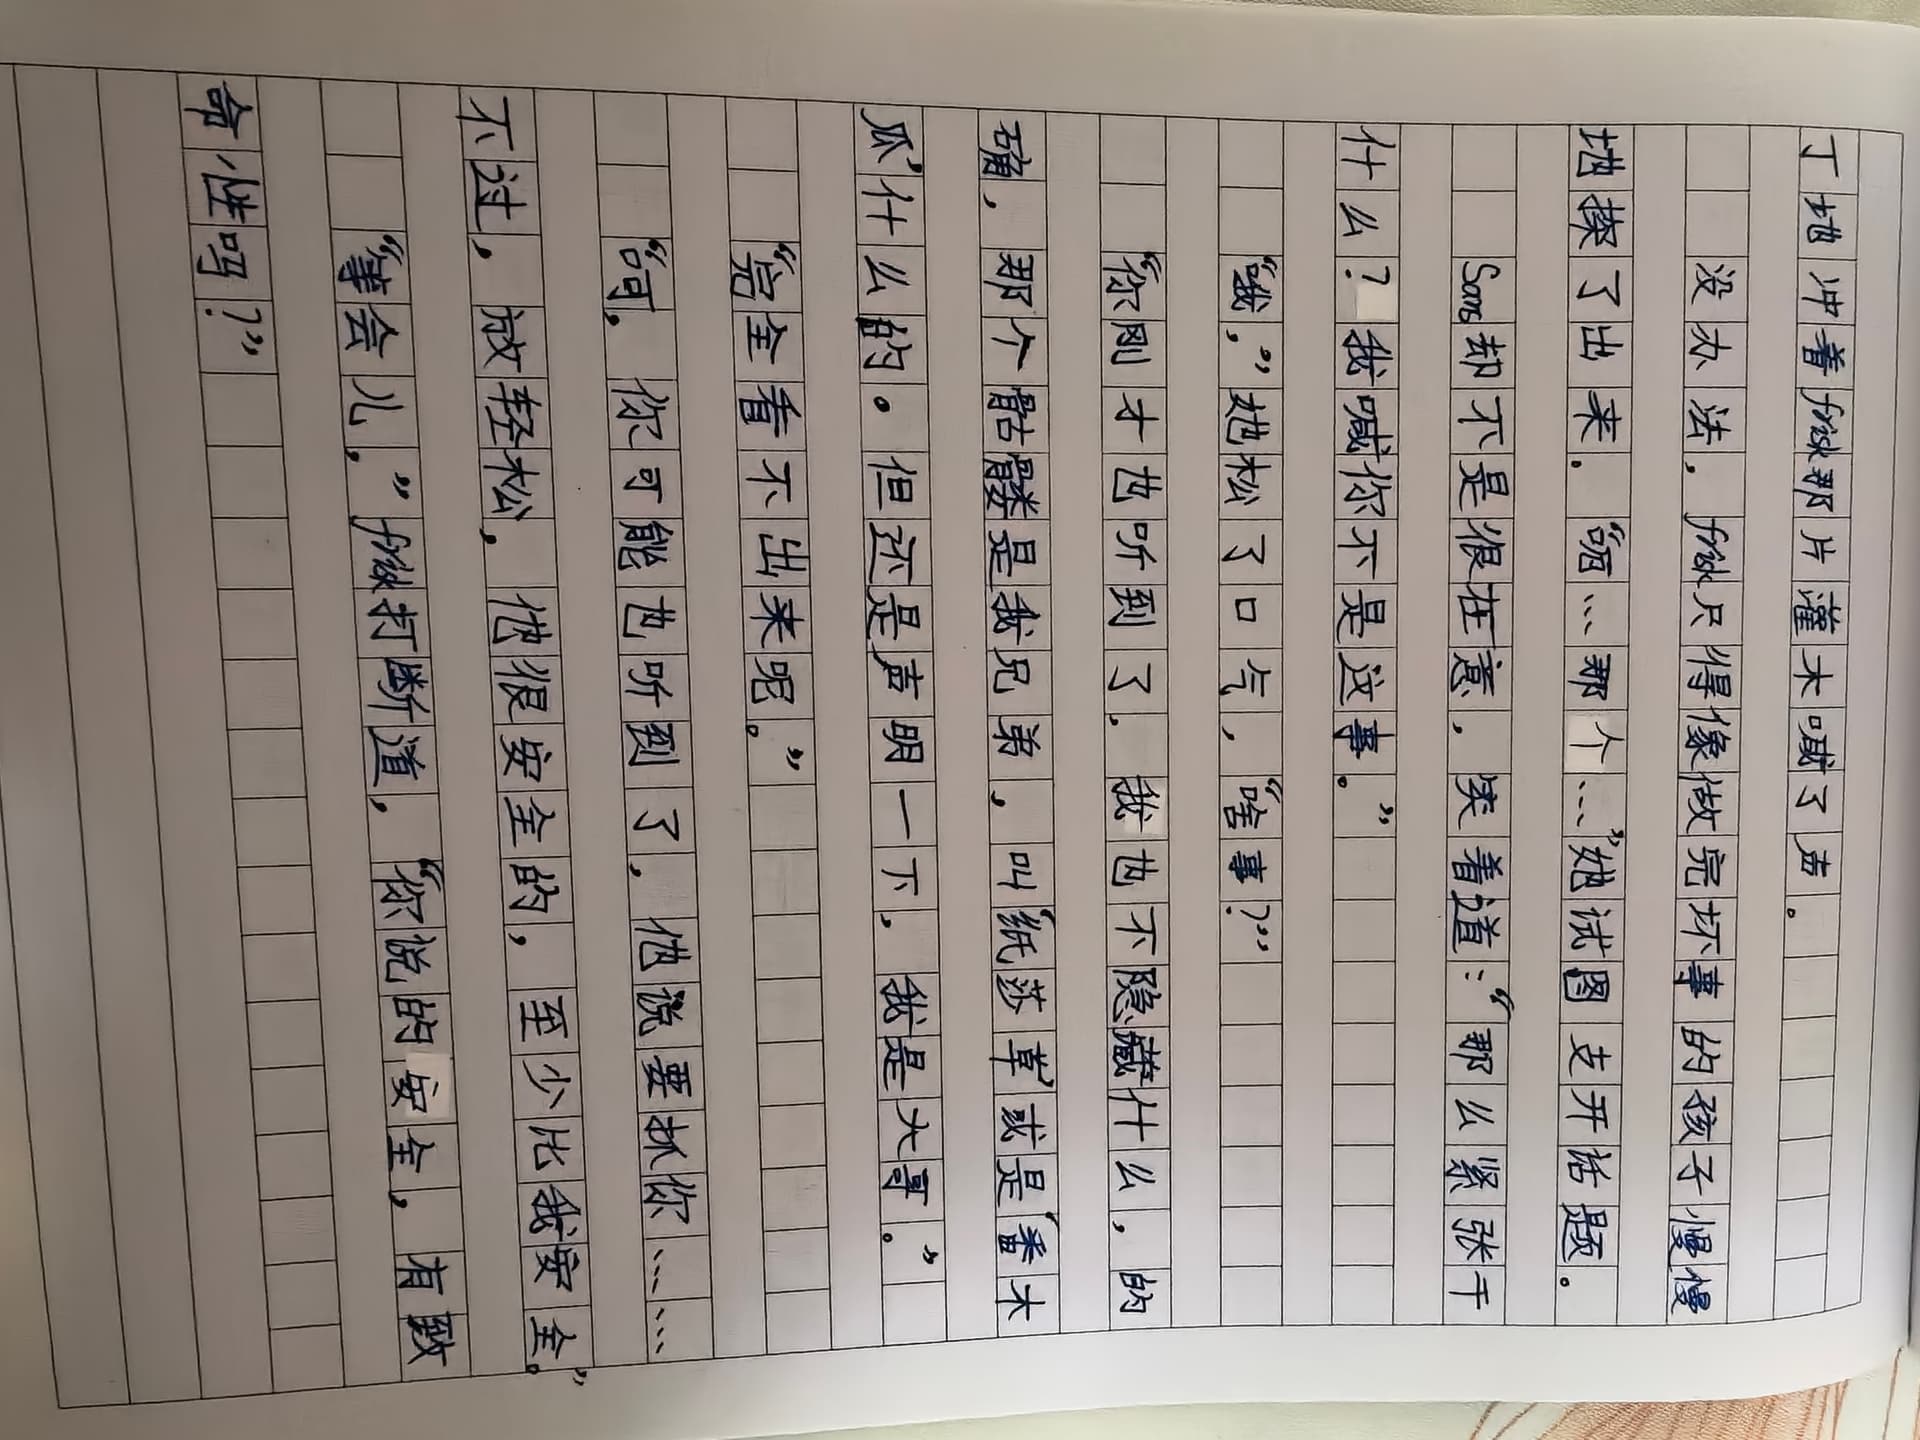 丁地冲着frisk那片灌木喊了声。
没办法，frisk只得像做完坏事的孩子慢慢
地揉了出来.“嗨……那个……”她试图支开话题。
Sans却不是很在意，笑着道：“那么紧张干
什么？我喊你不是这事。”
“哦，”她松了口气，“啥事？”
“你刚才也听到了.我也不隐藏什么，的
确，那个骷髅是我兄弟，叫‘纸莎草’或是‘番木
瓜’什么的。但还是声明一下，我是大哥。”
“完全看不出来呢。”
“呵，你可能也听到了，他说要抓你……
不过，放轻松，他很安全的，至少比我安全。”
“等会儿，”frisk打断道，“你说的安全，有致
命性吗？”